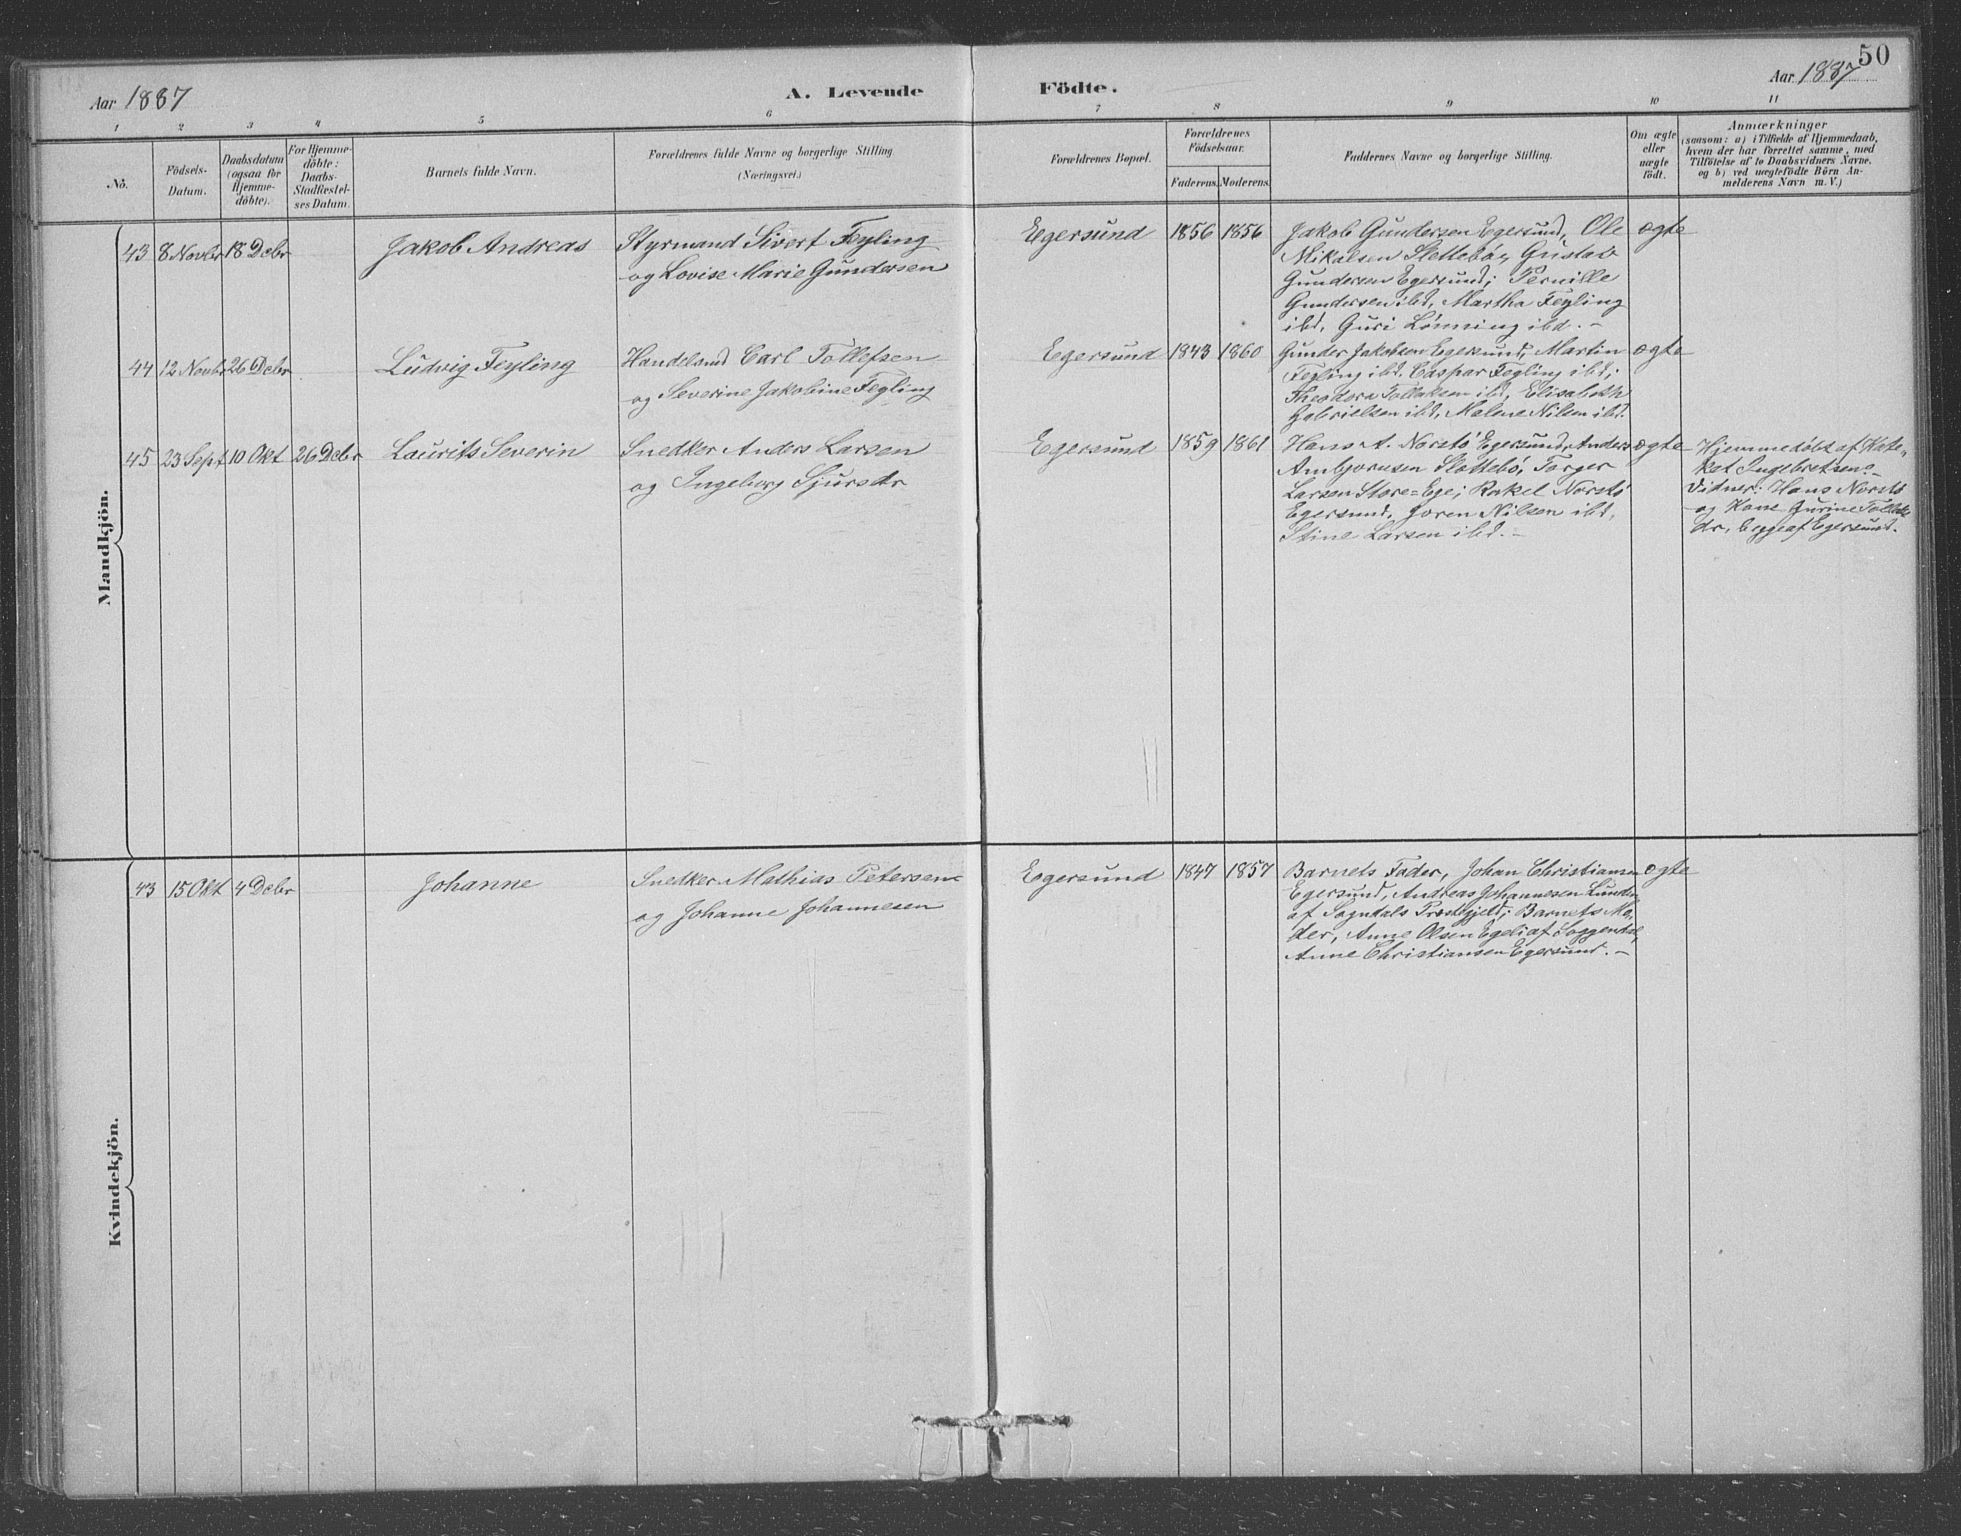 50
Aar 1887
A. Levende
Födte.
Aar 1887
1 2 3 4 5 6 7 8 9 10 11
No.
Födsels-
Datum.
Daabsdatum
(ogsaa for
Hjemme-
döbte).
For Hjemme-
döbte:
Daabs-
Stadfæstel-
ses Datum.
Barnets fulde Navn.
Forældrenes fulde Navne og borgerlige Stilling
(Næringsvei.)
Forældrenes Bopæl.
Forældrenes
Födselsaar.
Faderens. Moderens.
Faddernes Navne og borgerlige Stilling.
Om ægte
eller
uægte
födt.
Anmærkninger
(saasom: a) i Tilfælde af Hjemmedaab,
hvem der har forrettet samme, med
Tilföielse af to Daabsvidners Navne,
og b) ved uægtefödte Börn An-
melderens Navn m. V.)
Mandkjön.
43 8 Novbr 18 Decbr
Jakob Andreas
Styrmand Sivert Feyling
og Lovise Marie Gundersen
Egersund
1856 1856
Jakob Gundersen Egersund, Ole
Mikalsen Slettebö, Gustav
Gundersen Egersund; Pernille
Gundersen ibd, Martha Feyling
ibd, Guri Lønning ibd. -
ægte
44 12 Novbr 26 Decbr
Ludvig Feyling
Handelsmd Carl Tollefsen
og Severine Jakobine Feyling
Egersund
1843 1860
Gunder Jakobsen Egersund, Martin
Feyling ibd. Caspar Feyling ibd;
Theodora Tollaksen ibd, Elisabeth
Gabrielsen ibd, Malene Nilsen ibd.
ægte
45 23 Sept 10 Okt 26 Decbr
Laurits Severin
Snedker Anders Larsen
og Ingeborg Sjursdr
Egersund
1859 1861
Hans A. Norstö Egersund, Anders
Ambjørnsen Slettebö, Torger
Larsen Store-Ege; Rakel Norstö
Egersund, Joren Nilsen ibd,
Stine Larsen ibd. -
ægte
Hjemmedöbt af Kate-
ket Ingebretsen. -
Vidner: Hans Norstö
og Kone Gurine
dr, begge af Egersund.
Kvindekjön.
43 15 Okt 4 Decbr
Johanne
Snedker Mathias Petersen
og Johanne Johannesen
Egersund
1847 1857
Barnets Fader, Johan Christiansen
Egersund, Andreas Johannesen
af Sogndals Præstegjeld; Barnets Mo-
der, Anne Olsen Egeli af Soggendal,
Anne Christiansen Egersund. -
ægte